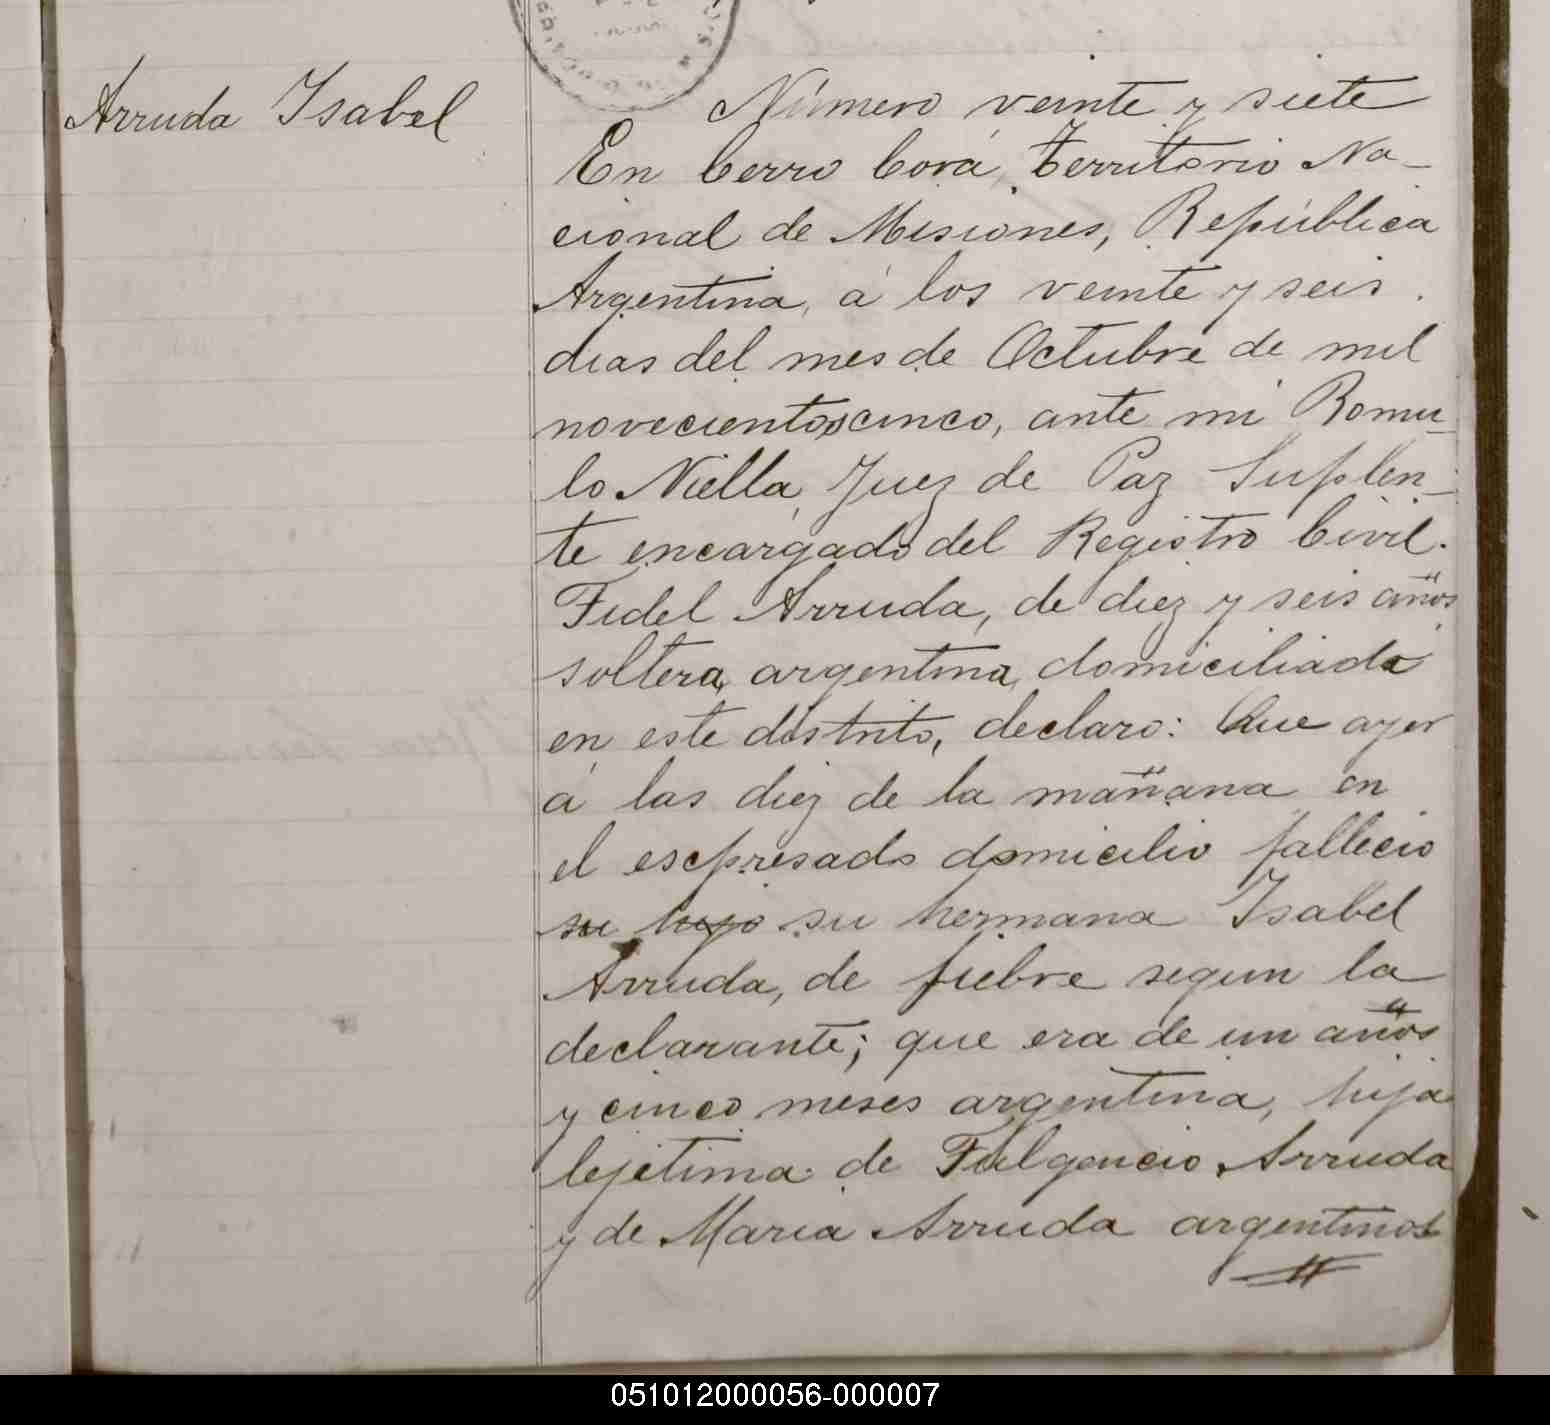 Arruda Isabel
Número veinte y siete
En Cerro Corá, Territorio Na-
cional de Misiones, República
Argentina, á los veinte y seis
dias del mes de Octubre de mil
novecientos cinco, ante mi Romu-
lo Niella, Juez de Paz Suplen-
te encargado del Registro Civil.
Fidel Arruda, de diez y seis años
soltera, argentina, domiciliada
en este distrito, declaro: Que ayer
á las diez de la mañana en
el escpresado domicilio fallecio
su hijo su hermana Isabel
Arruda, de fiebre segun la
declarante; que era de un años
y cinco meses argentina, hija
lejitima de Fulgencio Arruda
y de Maria Arruda argentinos
051012000056-000007